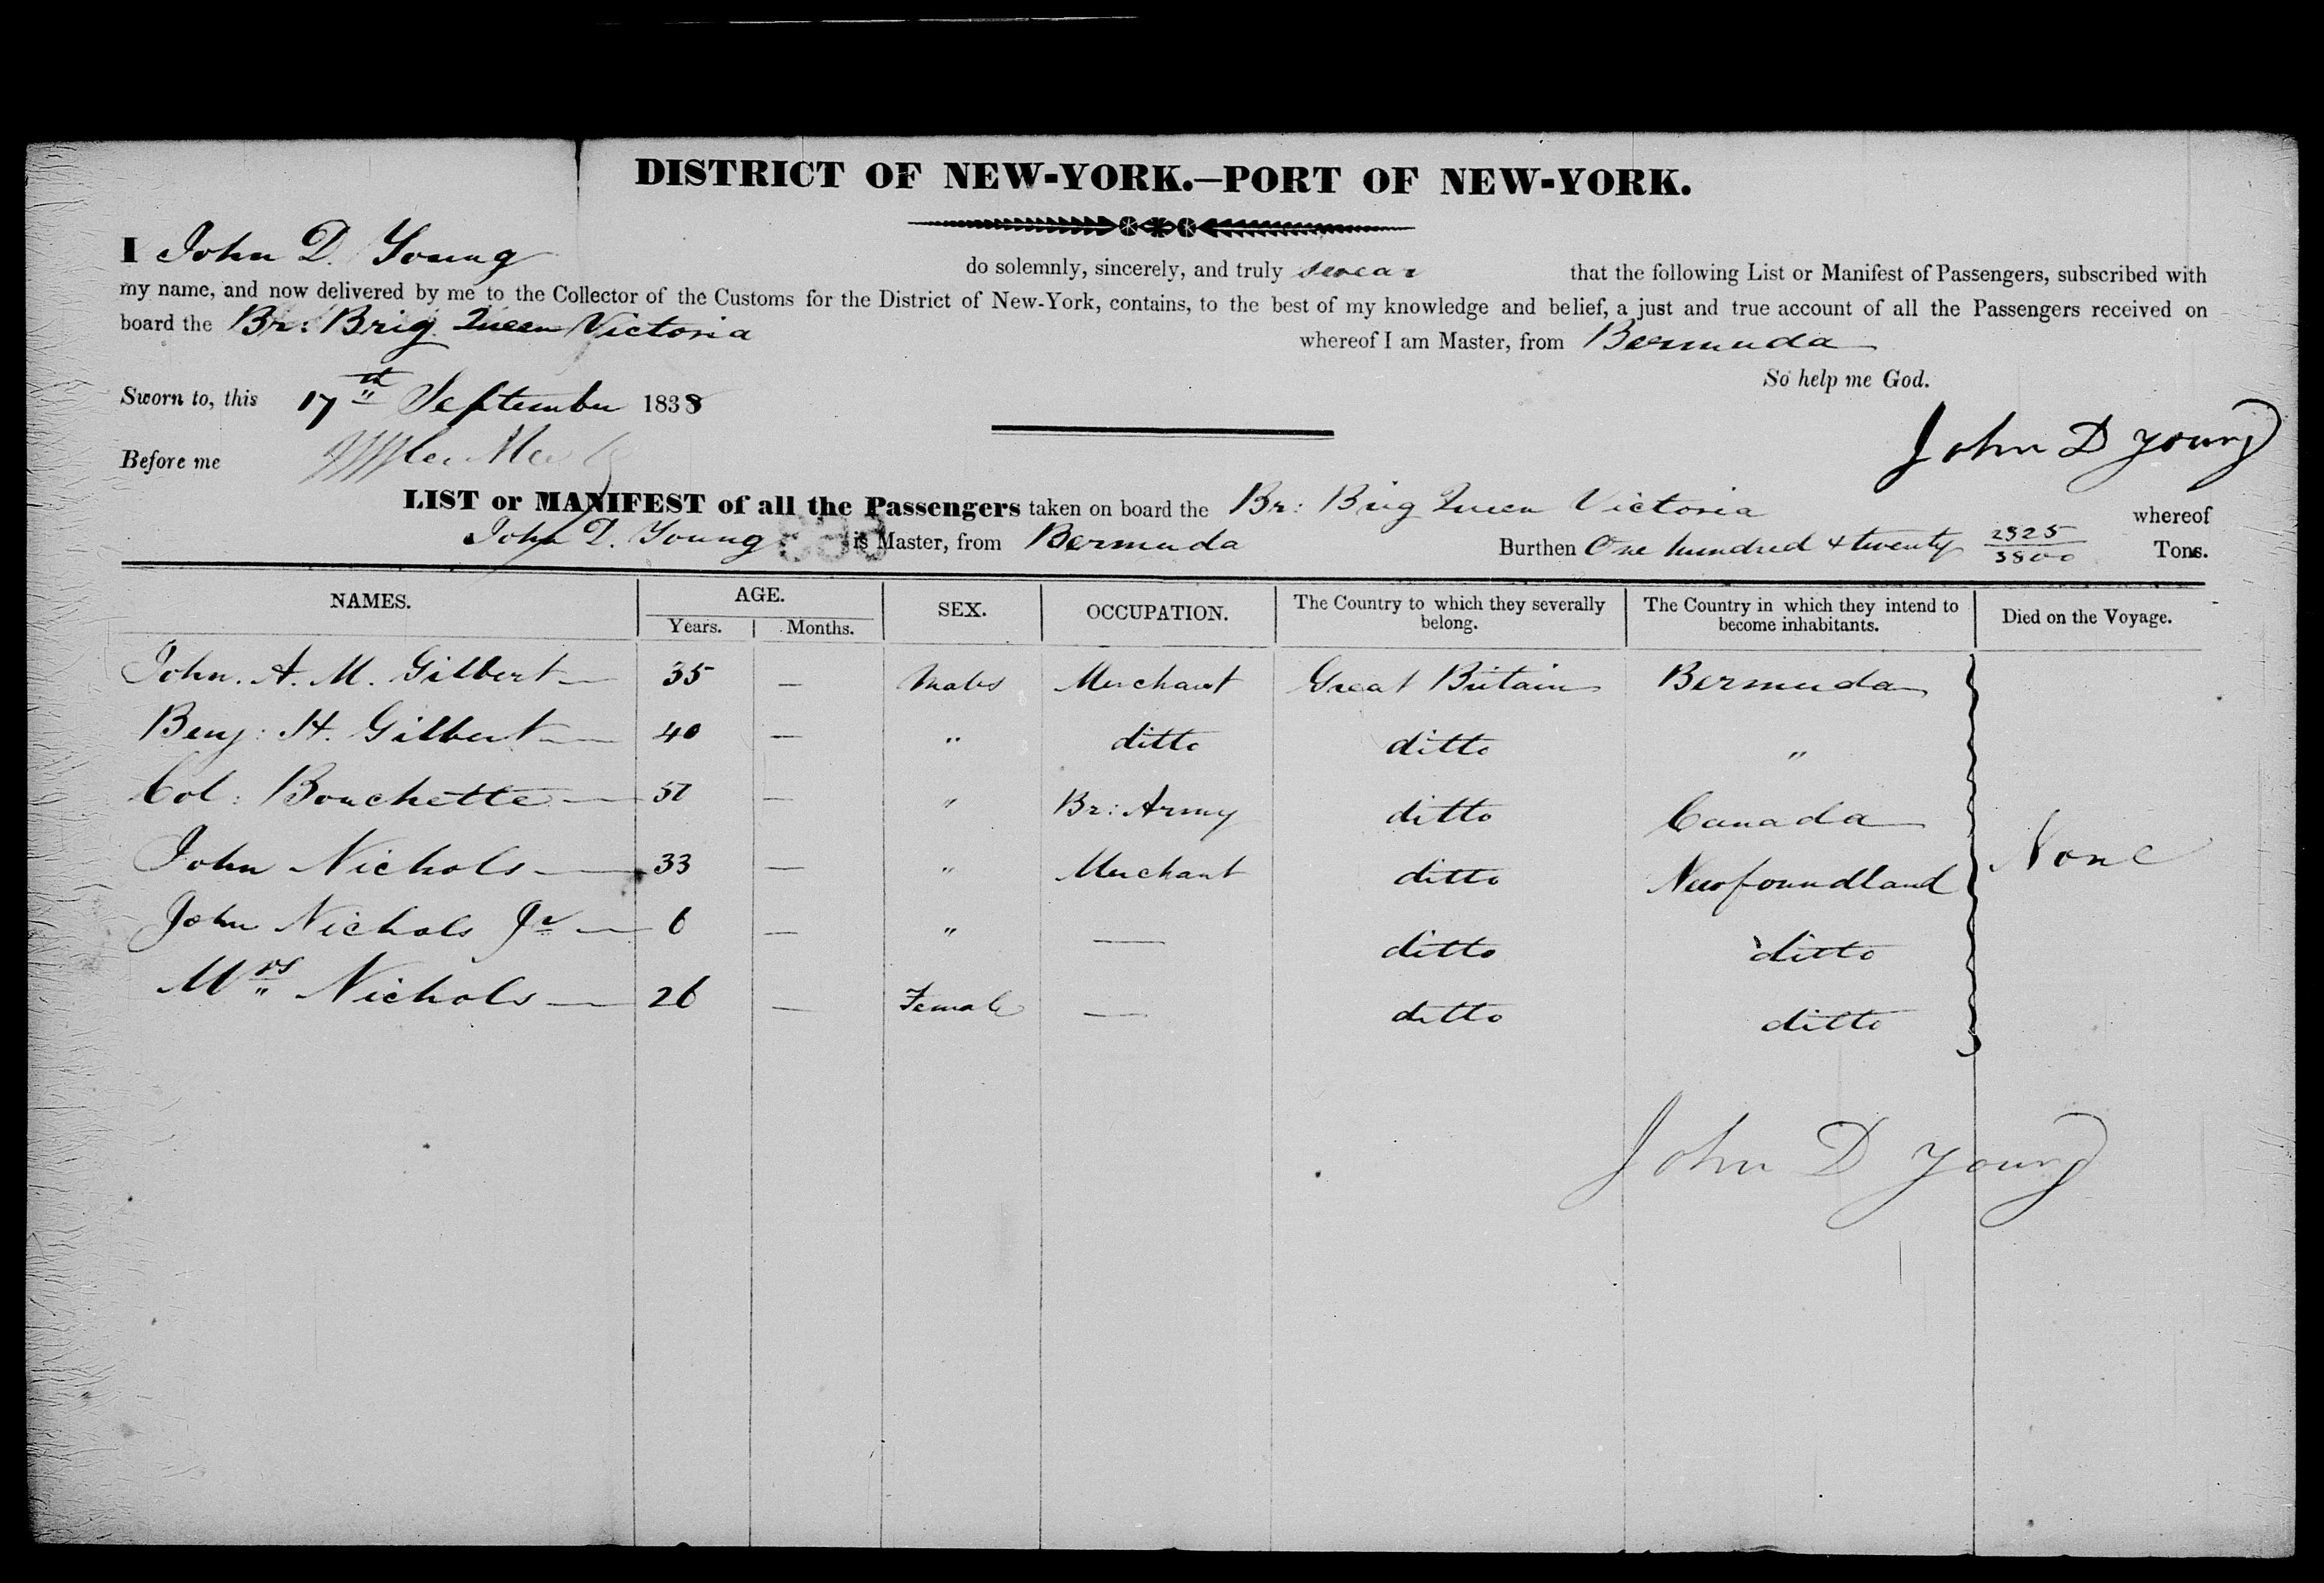 DISTRICT OF NEW-YORK.—PORT OF NEW-YORK.
I John D. Young do solemnly, sincerely, and truly swear that the following List or Manifest of Passengers, subscribed with
my name, and now delivered by me to the Collector of the Customs for the District of New-York, contains, to the best of my knowledge and belief, a just and true account of all the Passengers received on
board the Br: Brig Queen Victoria whereof I am Master, from Bermuda
So help me God.
Sworn to, this 17th September 1838
John D Young
Before me
LIST or MANIFEST of all the Passengers taken on board the Br: Brig Queen Victoria whereof
John D. Young is Master, from Bermuda Burthen One hundred & twenty 2325/3800 Tons.
NAMES. AGE. Years. Months. SEX. OCCUPATION. The Country to which they severally belong. The Country in which they intend to become inhabitants. Died on the Voyage.
John. A. M. Gilbert — 35 — Males Merchant Great Britain Bermuda
Benj: H. Gilbert — 40 — " ditto ditto "
Col: Bouchette — 57 — " Br: Army ditto Canada
John Nichols — 33 — " Merchant ditto Newfoundland None
John Nichols Jr — 6 — " — ditto ditto
Mrs Nichols — 26 — Female — ditto ditto
John D Young